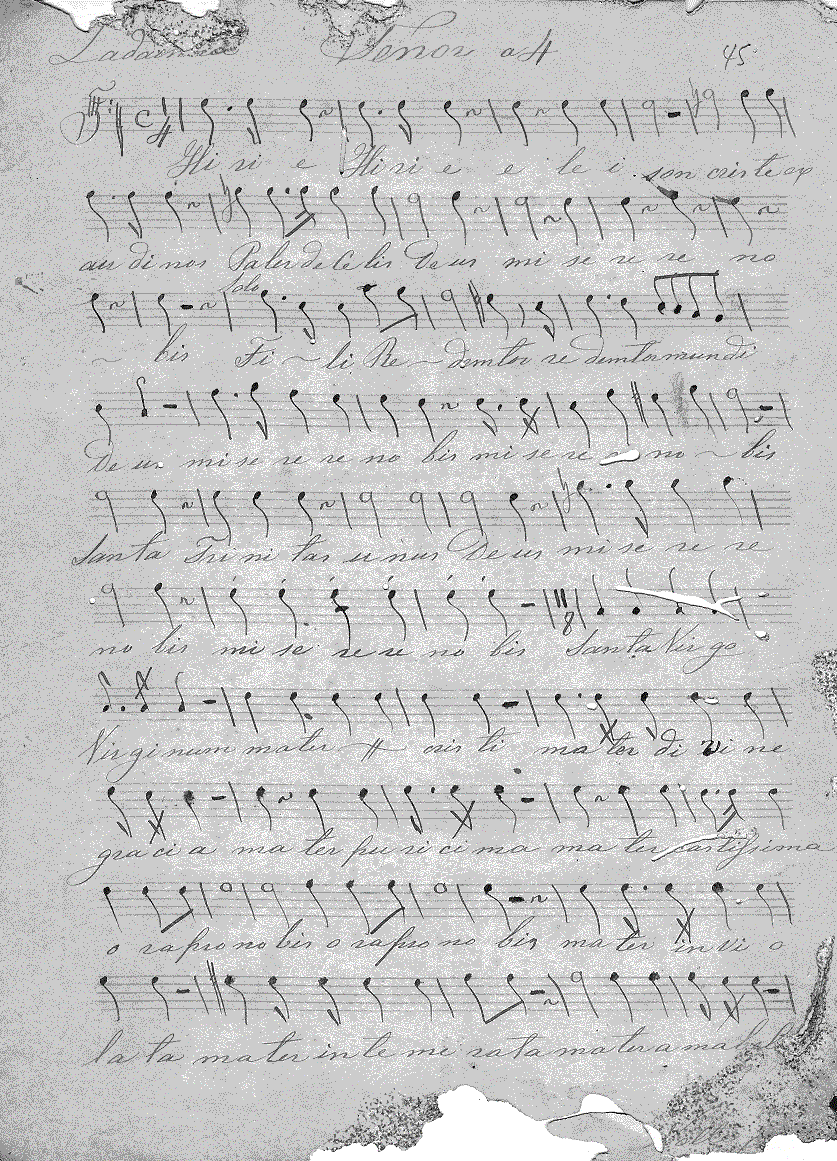 Tenor a 4 45
Ki ri e Ki ri e e le i son cris te ex
au di nos Pater de Ce lis De us mi se re re no
Solo
bis Fi li Re demtor re demtor mundi
De us mi se re re no bis mi se re no bis
Santa Tri ni tas u nus De us mi se re re
no bis mi se re re no bis Santa Virgo
Virginum mater cris ti ma ter di vi ne
gracia mater puricima mater castissima
o rapronobis o rapro no bis mater in vi o
la ta mater in te me rata mater ama